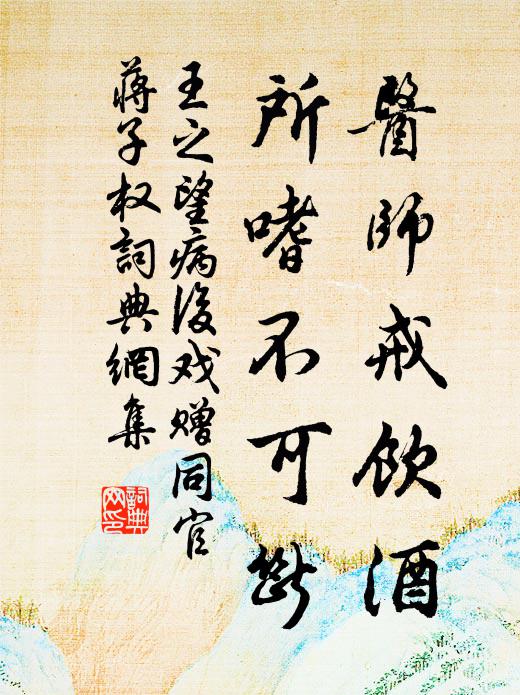 醫師戒飲酒
所嗜不可斷
王之望病後戏赠同官
蒋子权詞典網集
詞典网印